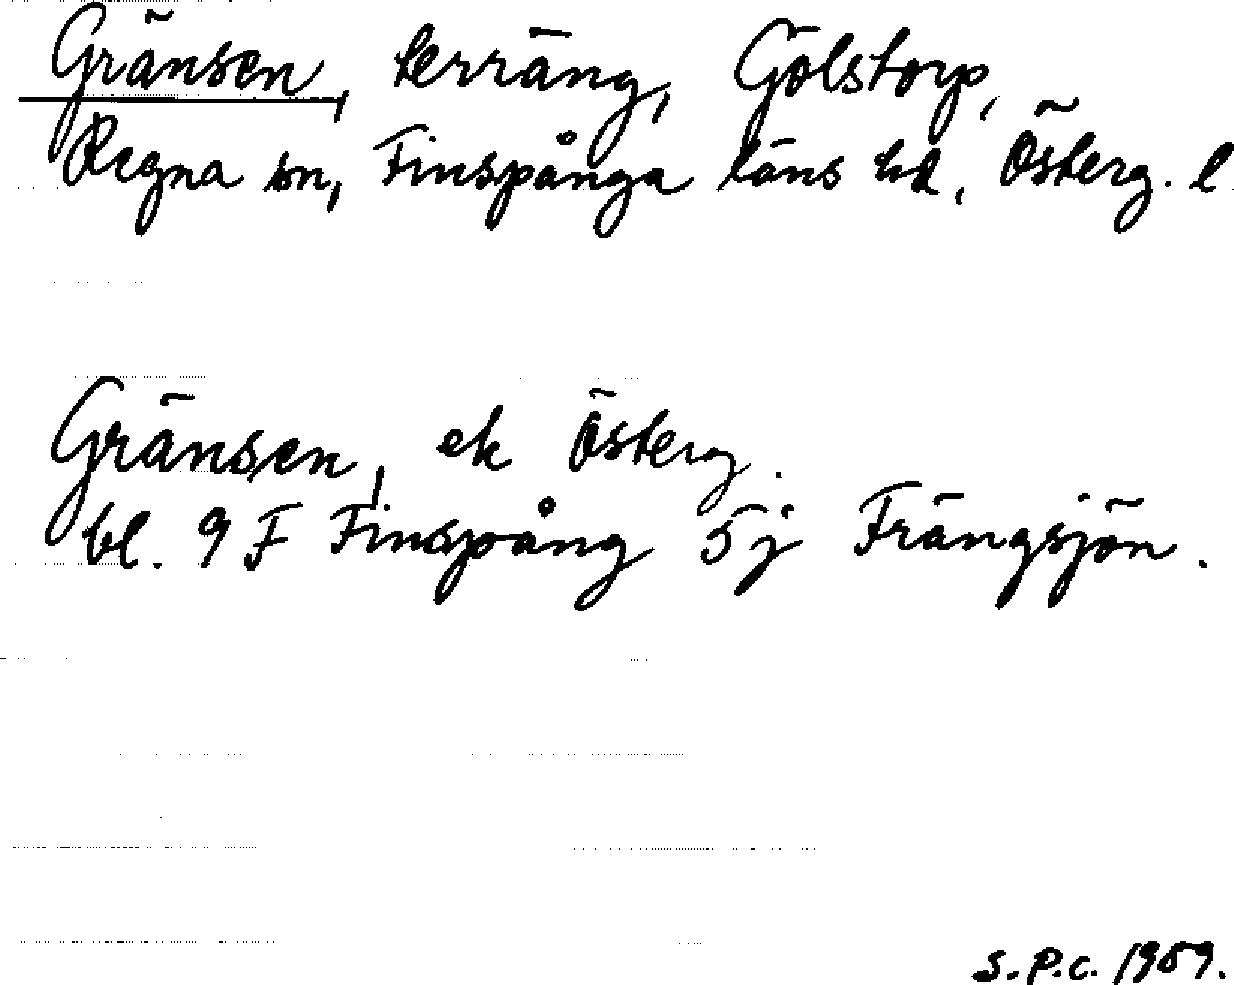 Gränsen, terräng, Gölstorp,
Regna sn, Finspånga läns hd, Österg. l.
Gränsen, ek Österg.
bl. 9 F Finspång 5j Frängsjön.
S.P.C. 1959.